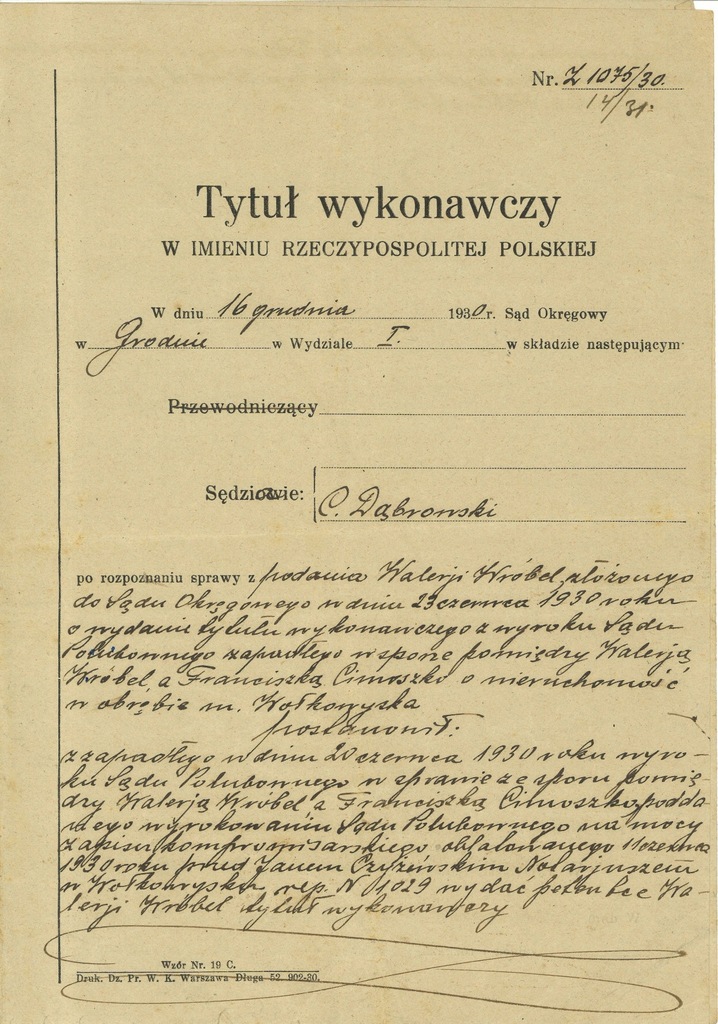 Nr. Z 1075/30.
14/31.
Tytuł wykonawczy
W IMIENIU RZECZYPOSPOLITEJ POLSKIEJ
W dniu 16 grudnia 1930 r. Sąd Okręgowy
w Grodnie w Wydziale I. w składzie następującym
Przewodniczący
Sędziowie:
C. Dąbrowski
po rozpoznaniu sprawy z podania Walerji Wróbel, złożonego
do Sądu Okręgowego w dniu 23 czerwca 1930 roku
o wydanie tytułu wykonawczego z wyroku Sądu
Polubownego zapadłego w sporze pomiędzy Walerją
Wróbel, a Franciszką Cimoszko o nieruchomość
w obrębie m. Wołkowyska
postanowił:
z zapadłego w dniu 20 czerwca 1930 roku wyro-
ku Sądu Polubownego w sprawie ze sporu pomię-
dzy Walerją Wróbel a Franciszką Cimoszko, podda-
nego wyrokowaniu Sądu Polubownego na mocy
zapisu kompromisarskiego oblatowanego 11 czerwca
1930 roku przed Janem Czyżewskim Notarjuszem
w Wołkowysku, rep. N 1029 wydać petentce Wa-
lerji Wróbel tytuł wykonawczy
Wzór Nr. 19 C.
Druk. Dz. Pr. W. K. Warszawa Długa 52. 902-30.